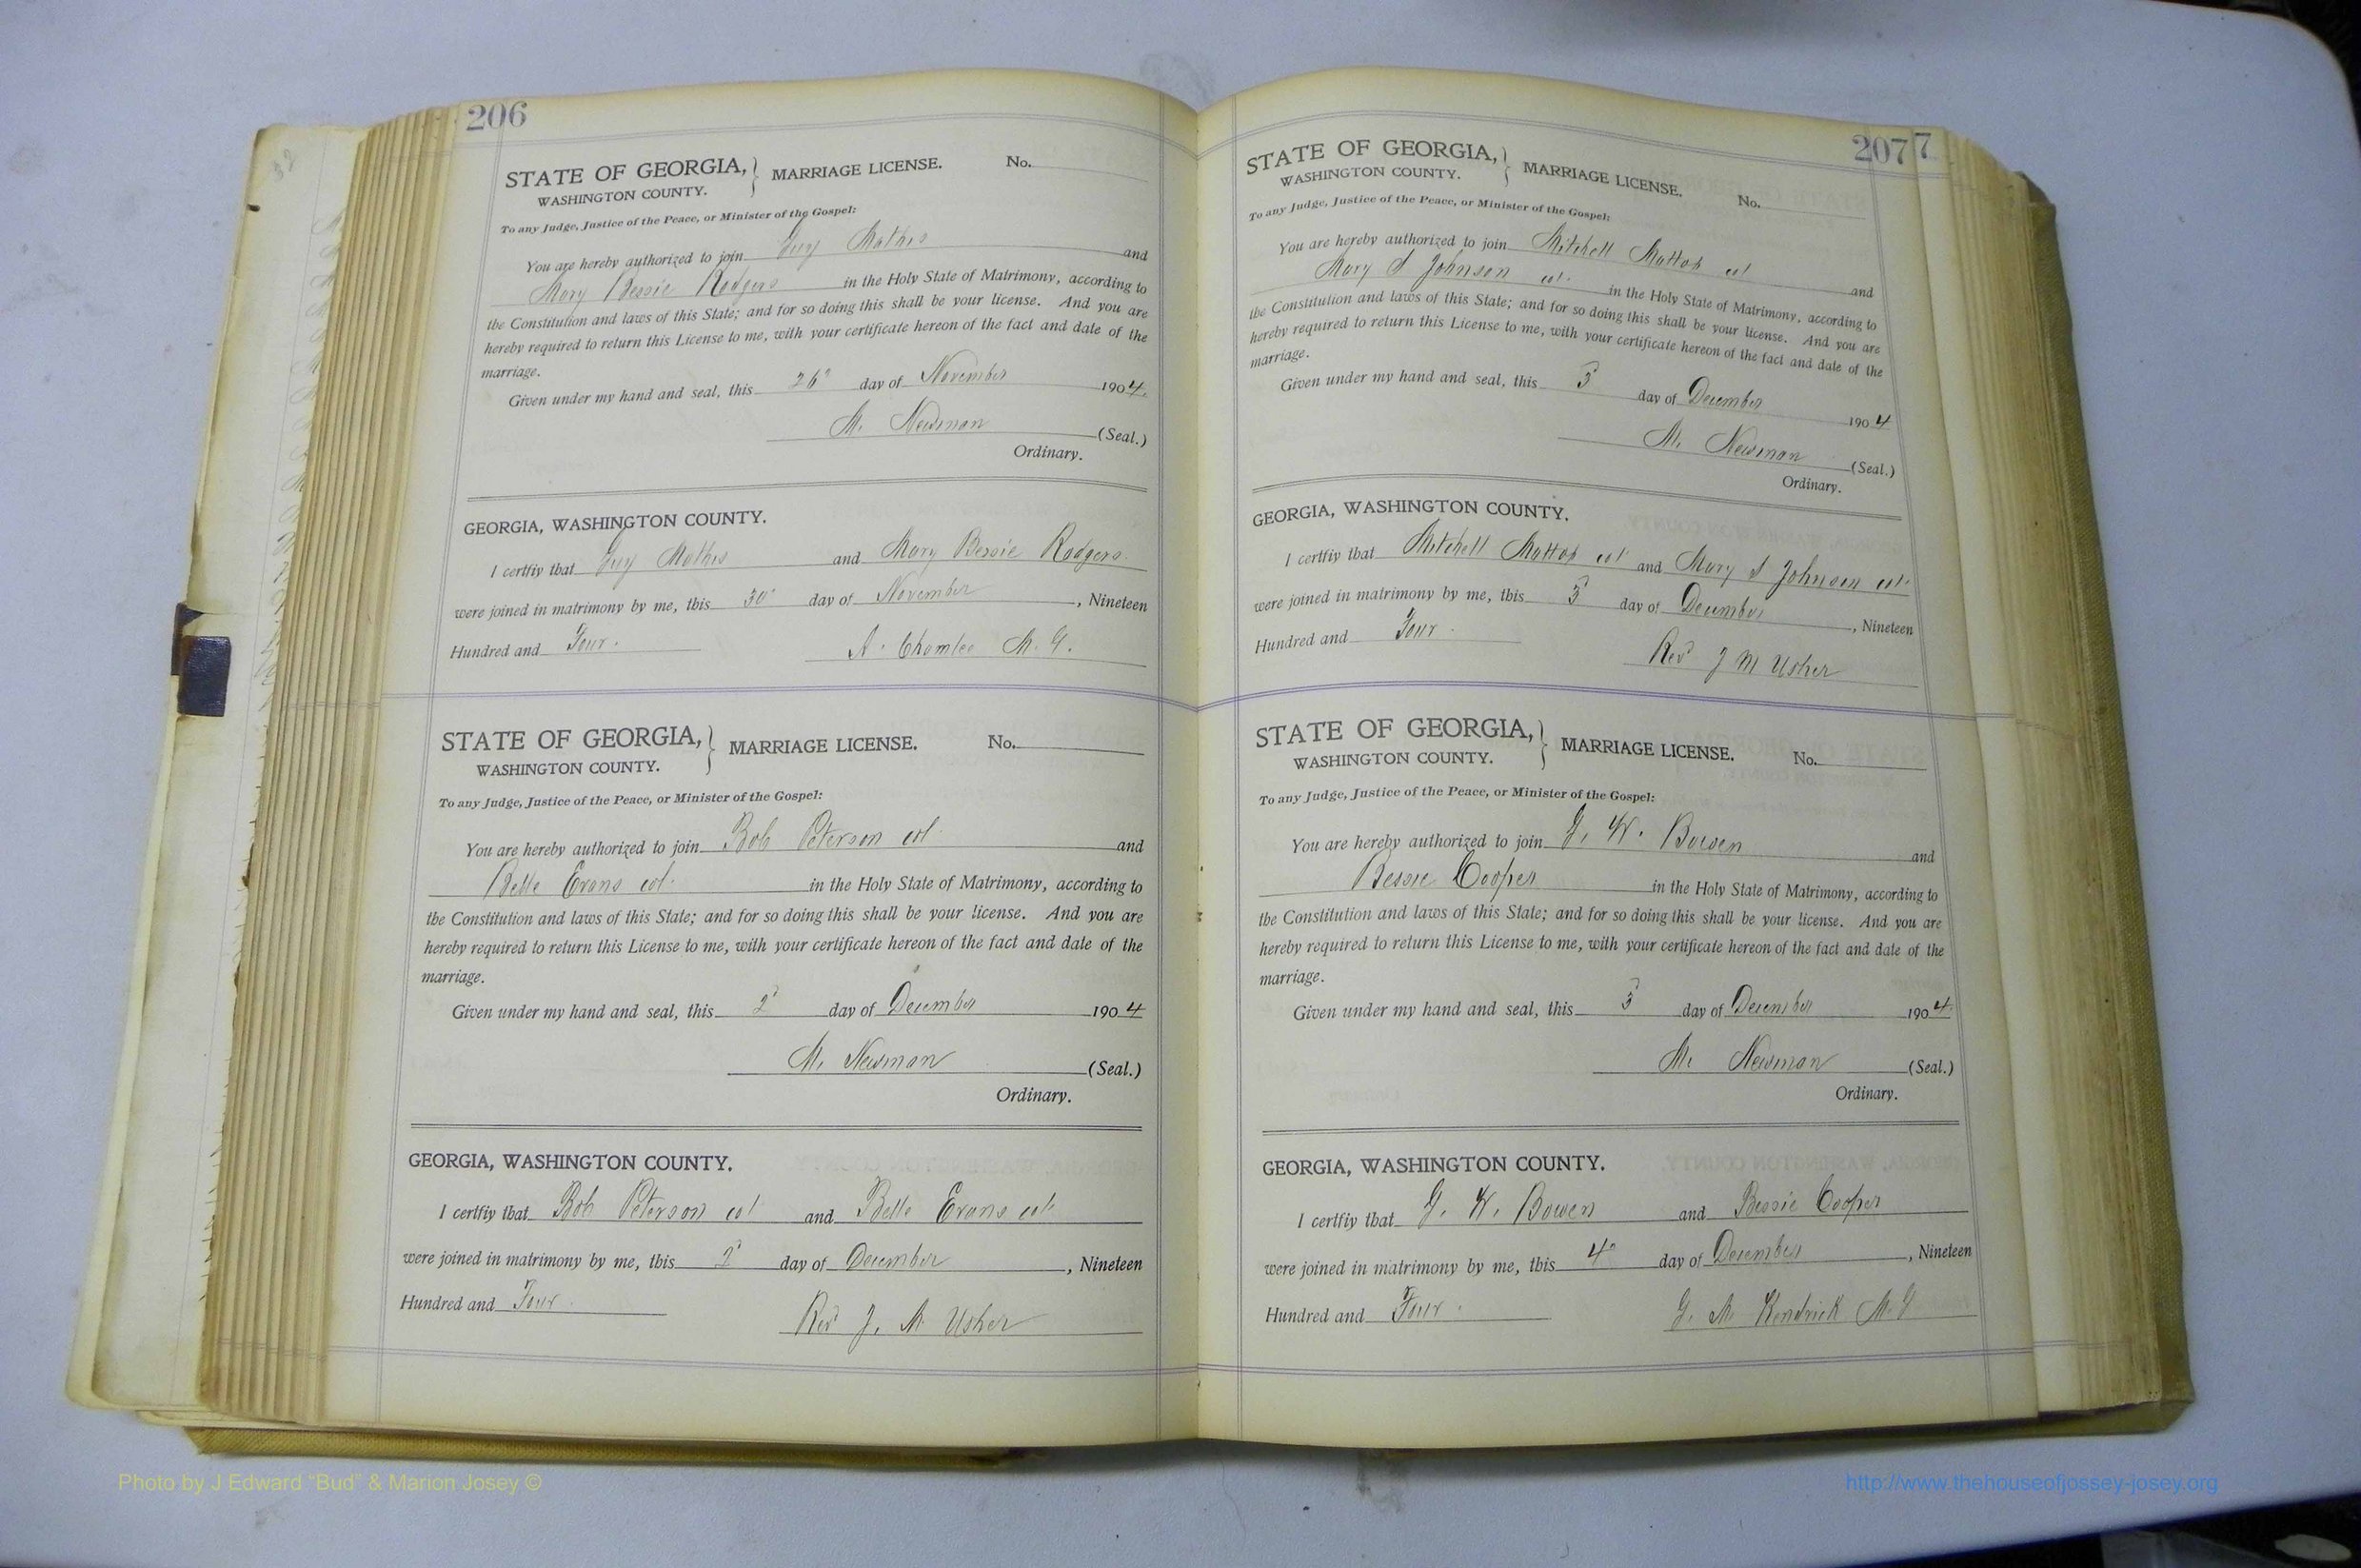 206
STATE OF GEORGIA, } MARRIAGE LICENSE. No.
WASHINGTON COUNTY.
To any Judge, Justice of the Peace, or Minister of the Gospel:
You are hereby authorized to join Guy Mathis and
Mary Bessie Rodgers in the Holy State of Matrimony, according to
the Constitution and laws of this State; and for so doing this shall be your license. And you are
hereby required to return this License to me, with your certificate hereon of the fact and date of the
marriage.
Given under my hand and seal, this 26" day of November 1904.
M. Newman (Seal.)
Ordinary.
GEORGIA, WASHINGTON COUNTY.
I certfiy that Guy Mathis and Mary Bessie Rodgers
were joined in matrimony by me, this 30" day of November, Nineteen
Hundred and Four. A. Chamlee M. G.
STATE OF GEORGIA, } MARRIAGE LICENSE. No.
WASHINGTON COUNTY.
To any Judge, Justice of the Peace, or Minister of the Gospel:
You are hereby authorized to join Bob Peterson col and
Belle Evans col. in the Holy State of Matrimony, according to
the Constitution and laws of this State; and for so doing this shall be your license. And you are
hereby required to return this License to me, with your certificate hereon of the fact and date of the
marriage.
Given under my hand and seal, this 2d day of December 1904
M. Newman (Seal.)
Ordinary.
GEORGIA, WASHINGTON COUNTY.
I certfiy that Bob Peterson col and Belle Evans col.
were joined in matrimony by me, this 2d day of December, Nineteen
Hundred and Four. Revd J. M Usher
207 7
STATE OF GEORGIA, } MARRIAGE LICENSE. No.
WASHINGTON COUNTY.
To any Judge, Justice of the Peace, or Minister of the Gospel:
You are hereby authorized to join Mitchell col and
Mary S Johnson col. in the Holy State of Matrimony, according to
the Constitution and laws of this State; and for so doing this shall be your license. And you are
hereby required to return this License to me, with your certificate hereon of the fact and date of the
marriage.
Given under my hand and seal, this 3d day of December 1904
M. Newman (Seal.)
Ordinary.
GEORGIA, WASHINGTON COUNTY.
I certfiy that Mitchell col and Mary S Johnson col.
were joined in matrimony by me, this 3d day of December, Nineteen
Hundred and Four. Revd J M Usher
STATE OF GEORGIA, } MARRIAGE LICENSE. No.
WASHINGTON COUNTY.
To any Judge, Justice of the Peace, or Minister of the Gospel:
You are hereby authorized to join G. W. Bowen and
Bessie Cooper in the Holy State of Matrimony, according to
the Constitution and laws of this State; and for so doing this shall be your license. And you are
hereby required to return this License to me, with your certificate hereon of the fact and date of the
marriage.
Given under my hand and seal, this 3d day of December 1904.
M. Newman (Seal.)
Ordinary.
GEORGIA, WASHINGTON COUNTY.
I certfiy that G. W. Bowen and Bessie Cooper
were joined in matrimony by me, this 4" day of December, Nineteen
Hundred and Four. G. M. Kendrick M. G
Photo by J Edward “Bud” & Marion Josey ©
http://www.thehouseofjossey-josey.org